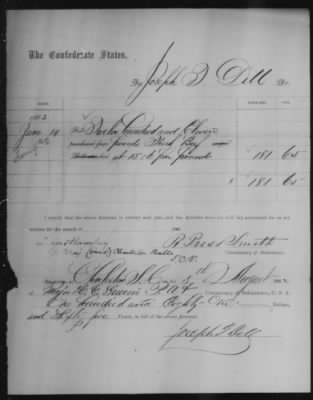 The Confederate States,
To Joseph T. Dell Dr.
DATE
DOLLARS
CENTS
1863
June 14
Twelve hundred and Eleven
purchased from pounds Fresh Beef
at 15 cts per pound
$ 181 65
$ 181 65
I certify that the above account is correct and just, and that the articles were
returns for the month of 186
R Press Smith
Commissary of Subsistence,
S.C.V.
Charleston S.C. 8th August 186
Major H. C. Guerin Commissary of Subsistence, C. S. A.
One hundred and Eighty One Dollars,
and Sixty five Cents, in full of the above Account.
Joseph T Dell